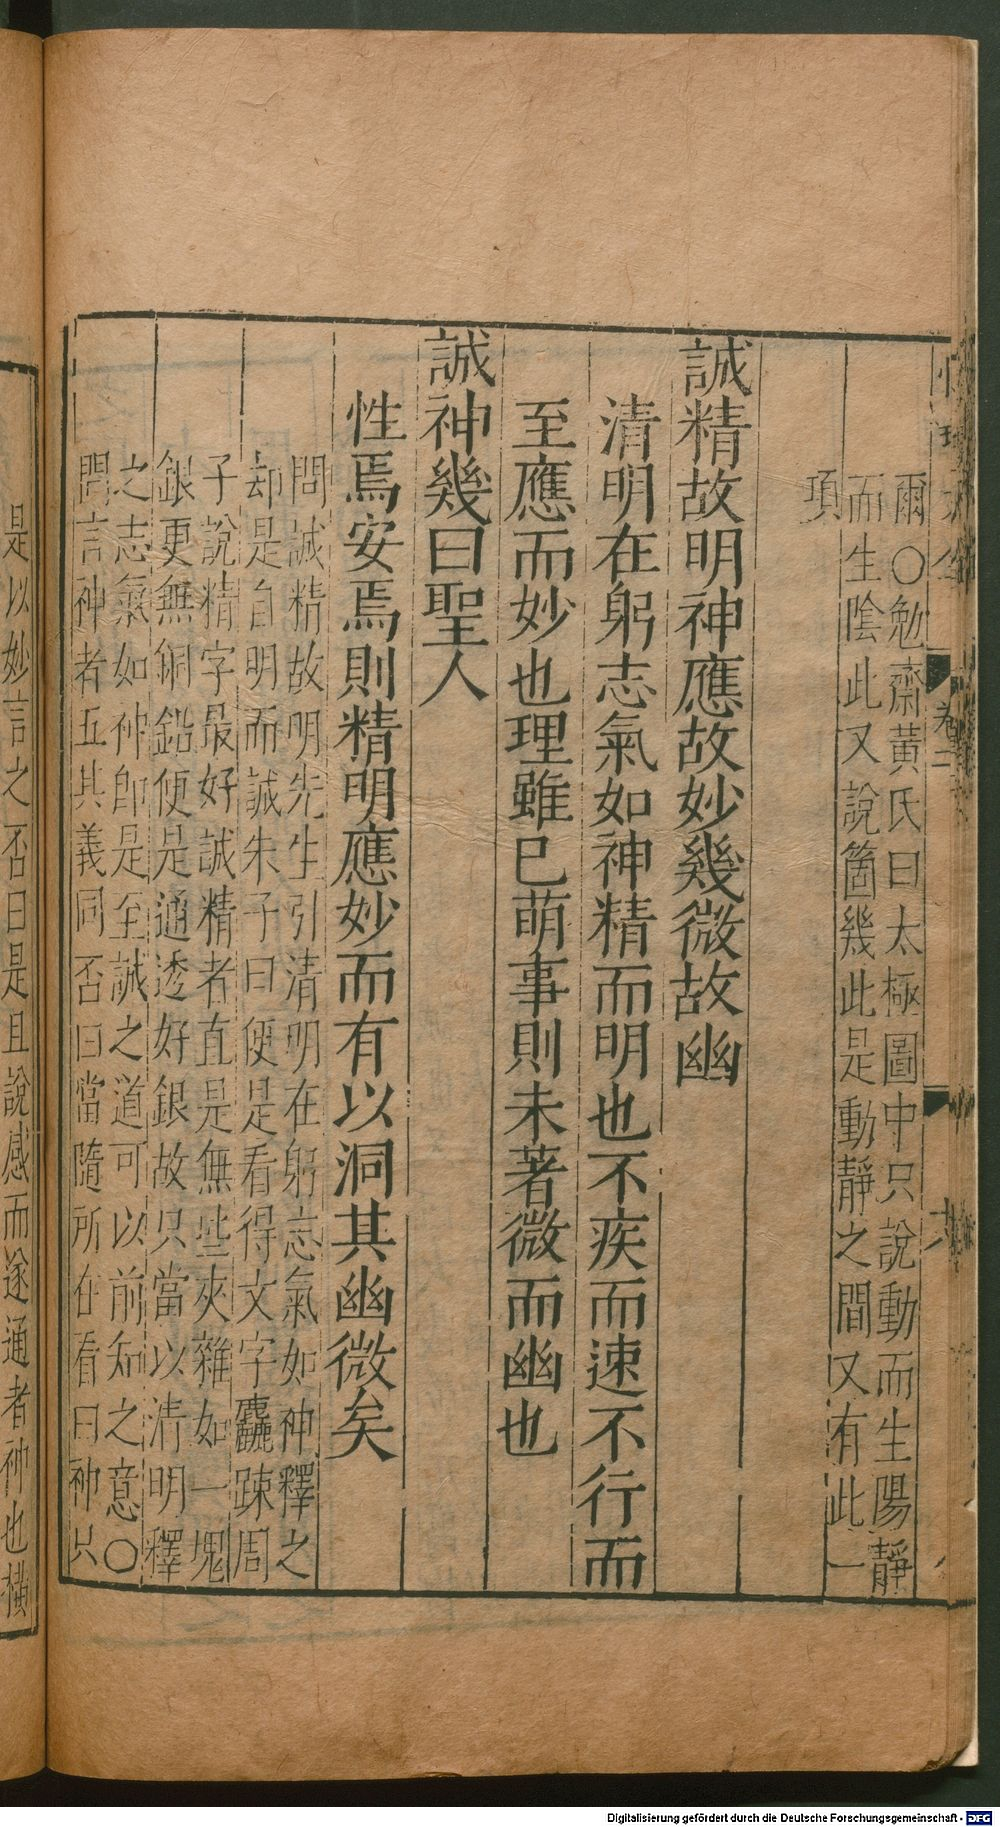 爾○勉齋黃氏曰太極圖中只說動而生陽靜
而生陰此又說箇幾此是動靜之間又有此一
項
誠精故明神應故妙幾微故幽
清明在躬志氣如神精而明也不疾而速不行而
至應而妙也理雖已萌事則未著微而幽也
誠神幾曰聖人
性焉安焉則精明應妙而有以洞其幽微矣
問誠精故明先生引清明在躬志氣如神釋之
却是自明而誠朱子曰便是看得文字麤踈周
子說精字最好誠精者直是無些夾雜如一塊
銀更無銅鉛便是通透好銀故只當以清明釋
之志氣如神即是至誠之道可以前知之意○
問言神者五其義同否曰當隨所在看曰神只
是以妙言之否曰是且說感而遂通者神也橫
卷二
Digitalisierung gefördert durch die Deutsche Forschungsgemeinschaft - DFG